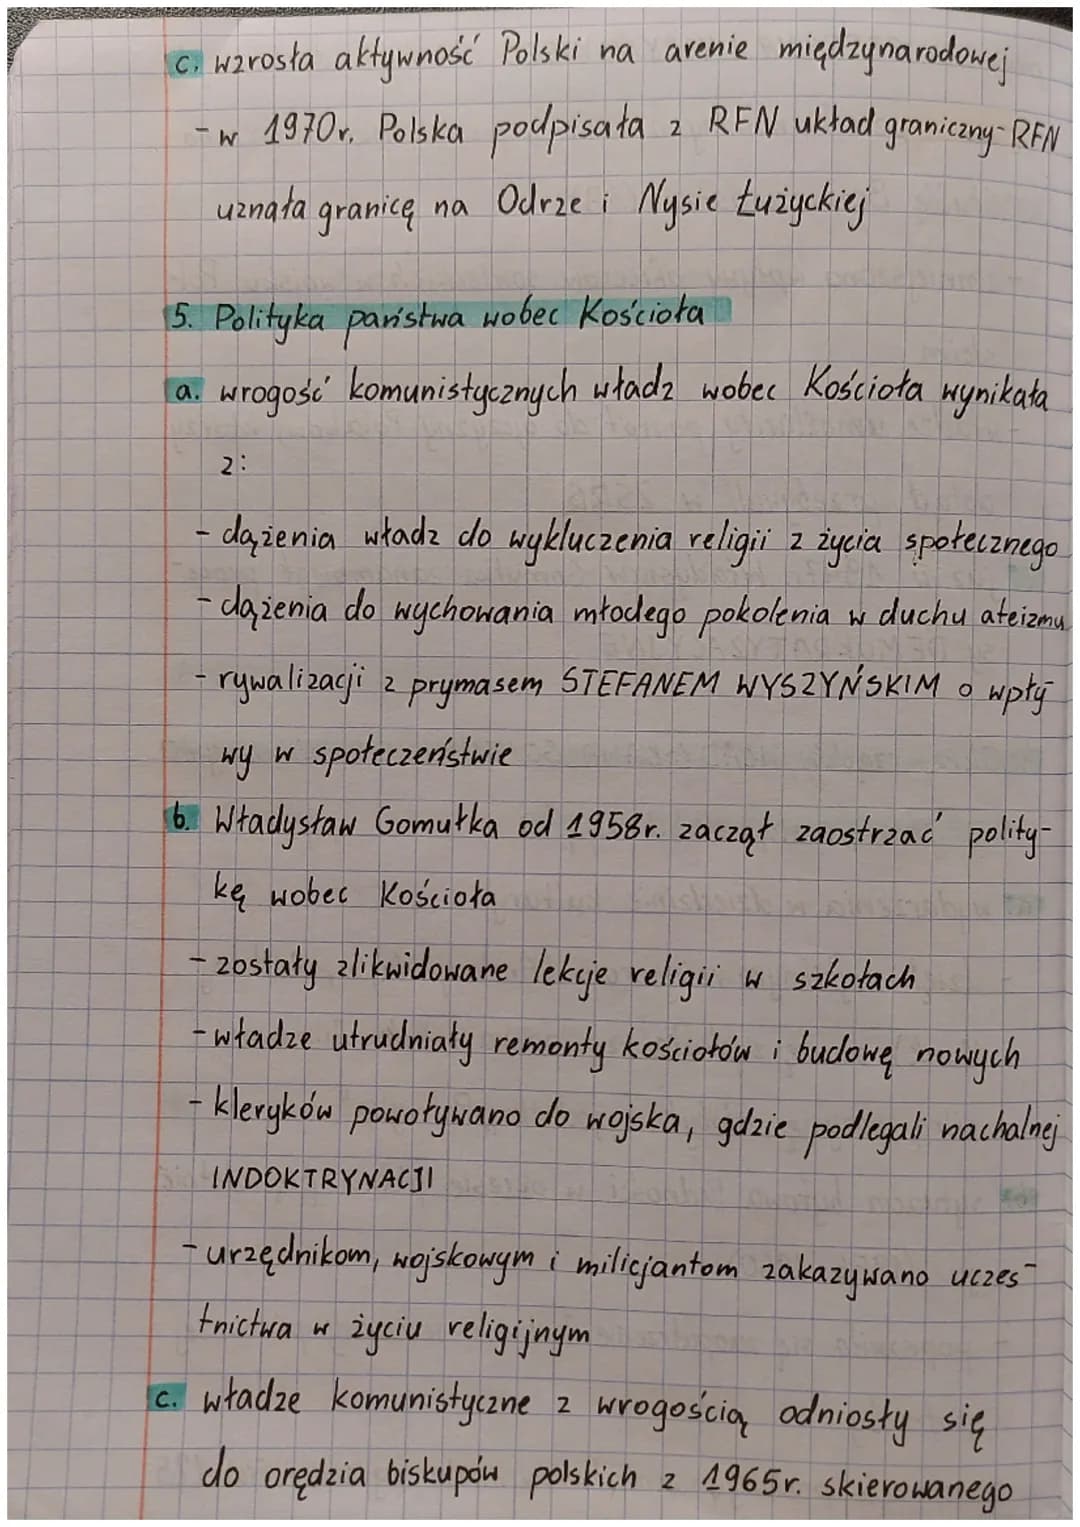 c. wzrosła aktywność Polski na arenie międzynarodowej
- w 1970r. Polska podpisała z RFN układ graniczny - RFN
uznała granicę na Odrze i Nysie Łużyckiej
5. Polityka państwa wobec Kościoła
a. wrogość komunistycznych władz wobec Kościoła wynikała
z:
- dążenia władz do wykluczenia religii z życia społecznego
- dążenia do wychowania młodego pokolenia w duchu ateizmu
- rywalizacji z prymasem STEFANEM WYSZYŃSKIM o wpły-
wy w społeczeństwie
b. Władysław Gomułka od 1958r. zaczął zaostrzać polity-
kę wobec Kościoła
- zostały zlikwidowane lekcje religii w szkołach
- władze utrudniały remonty kościołów i budowę nowych
- kleryków powoływano do wojska, gdzie podlegali nachalnej
INDOKTRYNACJI
- urzędnikom, wojskowym i milicjantom zakazywano uczes-
tnictwa w życiu religijnym
c. władze komunistyczne z wrogością odniosły się
do orędzia biskupów polskich z 1965r. skierowanego